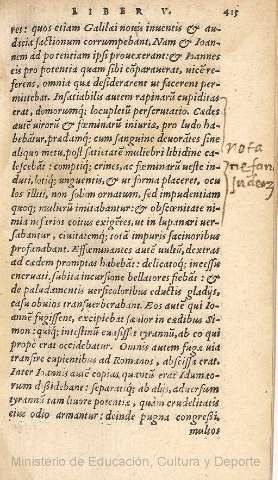 LIBER V.
415
ret: quos etiam Galilæi nouis inuentis & au-
dacia factionum corrumpebant. Nam & Ioan-
nem ad potentiam ipsi prouexerant: & Ioannes
eis pro potentia quam sibi cōparauerat, vicē re-
ferens, omnia quæ desiderarent vt facerent per-
mittebat. Insatiabilis autem rapinarū cupiditas
erat, domorumq́; locupletū perscrutatio. Cædes
autē virorū & fœminarum iniuria, pro ludo ha-
bebātur, prædamq́; cum sanguine deuorātes sine
aliquo metu, post satietatē muliebri libidine ca-
lescebāt: comptiq́; crines, ac fœminarū veste in-
duti, litiq́; vnguentis, & vt forma placeret, ocu-
los illiti, non solum ornatum, sed impudentiam
quoq́; mulierū imitabantur: & obscœnitate ni-
mia nefarios coitus exigētes, vt in lupanari ver-
sabantur, ciuitatemq́; totā impuris facinoribus
profanabant. Effœminantes autē vultū, dextras
ad cædem promptas habebāt: delicatoq́; incessu
eneruati, subita incursione bellatores fiebāt: &
de paludamentis versicoloribus eductis gladijs,
casu obuios transuerberabant. Eos autē qui Io-
annē fugissent, excipiebat sæuior in cædibus Si-
mon: quiq́; intestinū euasisset tyrannū, ab eo qui
propè erat occidebatur. Omnis autem fugæ via
transire cupientibus ad Romanos, abscissa erat.
Inter Ioannis autē copias, quantū erat Idumæo-
rum dissidebant: separatiq́; ab alijs, aduersum
tyrannū tam liuore potentiæ, quàm crudelitatis
eius odio armantur: deinde pugna congressi,
multos
nota
nefan
Iudeor
Ministerio de Educación, Cultura y Deporte